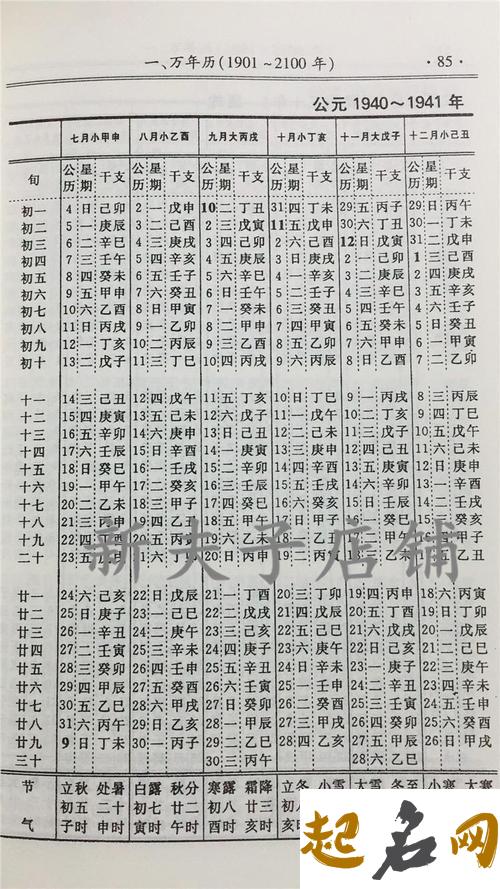 一、万年历(1901~2100年) · 85 ·
公元 1940～1941 年
七月小甲申 八月小乙酉 九月大丙戌 十月小丁亥 十一月大戊子 十二月小己丑
旬 公历 星期 干支 公历 星期 干支 公历 星期 干支 公历 星期 干支 公历 星期 干支 公历 星期 干支
初一 4 日 己卯 2 一 戊申 10 二 丁丑 31 四 丁未 29 五 丙子 29 日 丙午
初二 5 一 庚辰 3 二 己酉 2 三 戊寅 11 五 戊申 30 六 丁丑 30 一 丁未
初三 6 二 辛巳 4 三 庚戌 3 四 己卯 2 六 己酉 12 日 戊寅 31 二 戊申
初四 7 三 壬午 5 四 辛亥 4 五 庚辰 3 日 庚戌 2 一 己卯 1 三 己酉
初五 8 四 癸未 6 五 壬子 5 六 辛巳 4 一 辛亥 3 二 庚辰 2 四 庚戌
初六 9 五 甲申 7 六 癸丑 6 日 壬午 5 二 壬子 4 三 辛巳 3 五 辛亥
初七 10 六 乙酉 8 日 甲寅 7 一 癸未 6 三 癸丑 5 四 壬午 4 六 壬子
初八 11 日 丙戌 9 一 乙卯 8 二 甲申 7 四 甲寅 6 五 癸未 5 日 癸丑
初九 12 一 丁亥 10 二 丙辰 9 三 乙酉 8 五 乙卯 7 六 甲申 6 一 甲寅
初十 13 二 戊子 11 三 丁巳 10 四 丙戌 9 六 丙辰 8 日 乙酉 7 二 乙卯
十一 14 三 己丑 12 四 戊午 11 五 丁亥 10 日 丁巳 9 一 丙戌 8 三 丙辰
十二 15 四 庚寅 13 五 己未 12 六 戊子 11 一 戊午 10 二 丁亥 9 四 丁巳
十三 16 五 辛卯 14 六 庚申 13 日 己丑 12 二 己未 11 三 戊子 10 五 戊午
十四 17 六 壬辰 15 日 辛酉 14 一 庚寅 13 三 庚申 12 四 己丑 11 六 己未
十五 18 日 癸巳 16 一 壬戌 15 二 辛卯 14 四 辛酉 13 五 庚寅 12 日 庚申
十六 19 一 甲午 17 二 癸亥 16 三 壬辰 15 五 壬戌 14 六 辛卯 13 一 辛酉
十七 20 二 乙未 18 三 甲子 17 四 癸巳 16 六 癸亥 15 日 壬辰 14 二 壬戌
十八 21 三 丙申 19 四 乙丑 18 五 甲午 17 日 甲子 16 一 癸巳 15 三 癸亥
十九 22 四 丁酉 20 五 丙寅 19 六 乙未 18 一 乙丑 17 二 甲午 16 四 甲子
二十 23 五 戊戌 21 六 丁卯 20 日 丙申 19 二 丙寅 18 三 乙未 17 五 乙丑
新夫子店铺
廿一 24 六 己亥 22 日 戊辰 21 一 丁酉 20 三 丁卯 19 四 丙申 18 六 丙寅
廿二 25 日 庚子 23 一 己巳 22 二 戊戌 21 四 戊辰 20 五 丁酉 19 日 丁卯
廿三 26 一 辛丑 24 二 庚午 23 三 己亥 22 五 己巳 21 六 戊戌 20 一 戊辰
廿四 27 二 壬寅 25 三 辛未 24 四 庚子 23 六 庚午 22 日 己亥 21 二 己巳
廿五 28 三 癸卯 26 四 壬申 25 五 辛丑 24 日 辛未 23 一 庚子 22 三 庚午
廿六 29 四 甲辰 27 五 癸酉 26 六 壬寅 25 一 壬申 24 二 辛丑 23 四 辛未
廿七 30 五 乙巳 28 六 甲戌 27 日 癸卯 26 二 癸酉 25 三 壬寅 24 五 壬申
廿八 31 六 丙午 29 日 乙亥 28 一 甲辰 27 三 甲戌 26 四 癸卯 25 六 癸酉
廿九 9 日 丁未 30 一 丙子 29 二 乙巳 28 四 乙亥 27 五 甲辰 26 日 甲戌
三十 30 三 丙午 28 六 乙巳
节 立秋 处暑 白露 秋分 寒露 霜降 立冬 小雪 大雪 冬至 小寒 大寒
初五 二十 初七 廿二 初八 廿三 初
气 子时 申时 寅时 午时 酉时 亥时 亥
起名网